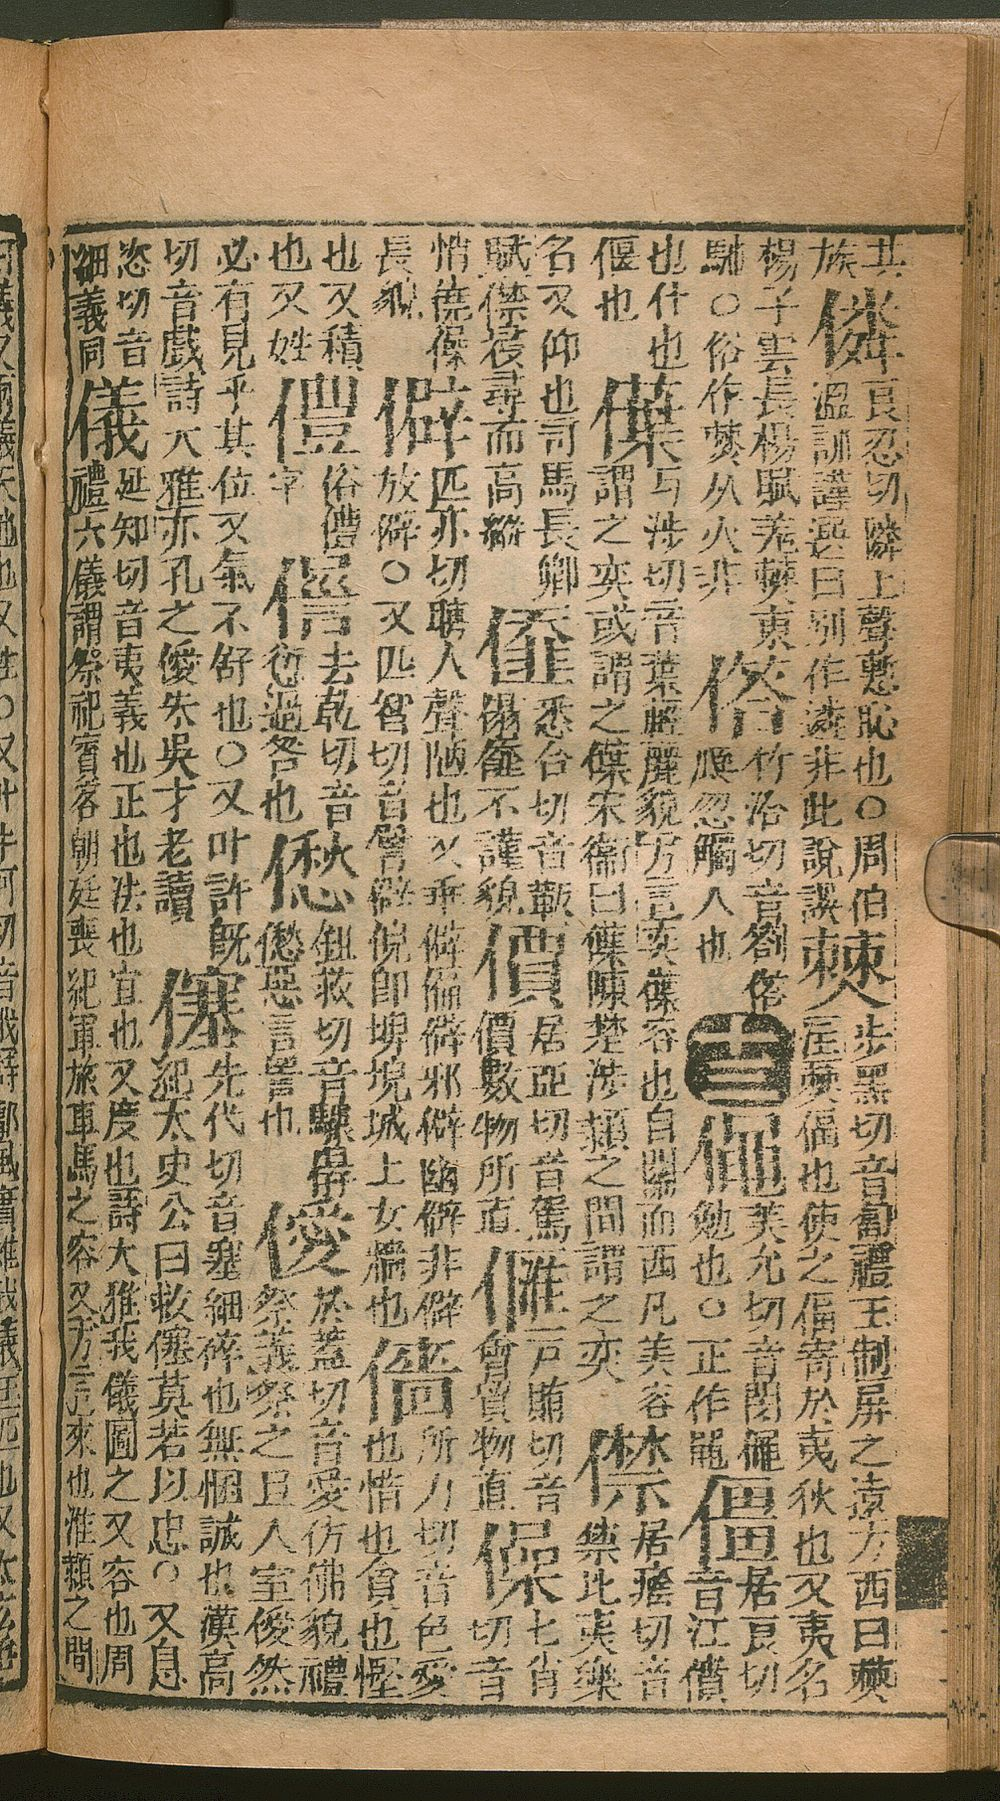 其族僯良忍切隣上聲慙恥也○周伯溫訓謹選曰別作遴非此說誤僰步黑切音匐禮王制屏之遠方西曰僰注僰偪也使之偪寄於夷狄也又夷名
楊子雲長楊賦羌僰東馳○俗作僰从火非竹洽切音劄忽觸人也十三僶美允切音閔僶勉也○正作黽僵居良切音江僨
也仆也偃也僷弋涉切音葉輕麗貌方言奕僷容也自關而西凡美容謂之奕或謂之僷宋衛曰僷陳楚汝潁之間謂之奕僸居廕切音禁北夷樂
名又仰也司馬長卿大人賦僸祲尋而高縱悉合切音靸不謹貌價居亞切音駕價數物所直戶賄切音會賃物直僺七肖切音
悄僥僺長貌僻匹亦切聘入聲陋也又乖僻偏僻邪僻幽僻非僻放僻○又匹智切音譬僻倪即埤堄城上女牆也所力切音色愛也惜也貪也慳
也又積也又姓僼俗僼字去乾切音愆過咎也鈕救切音驟僽惡言詈也僾於蓋切音愛仿佛貌禮祭義祭之日入室僾然
必有見乎其位又氣不舒也○又叶許既切音戲詩大雅亦孔之僾朱吳才老讀僿先代切音塞細碎也無悃誠也漢高紀太史公曰救僿莫若以忠○又息
恣切音細義同儀延知切音夷義也正也法也宜也又度也詩大雅我儀圖之又容也周禮六儀謂祭祀賓客朝廷喪紀軍旅車馬之容又方言來也淮潁之間